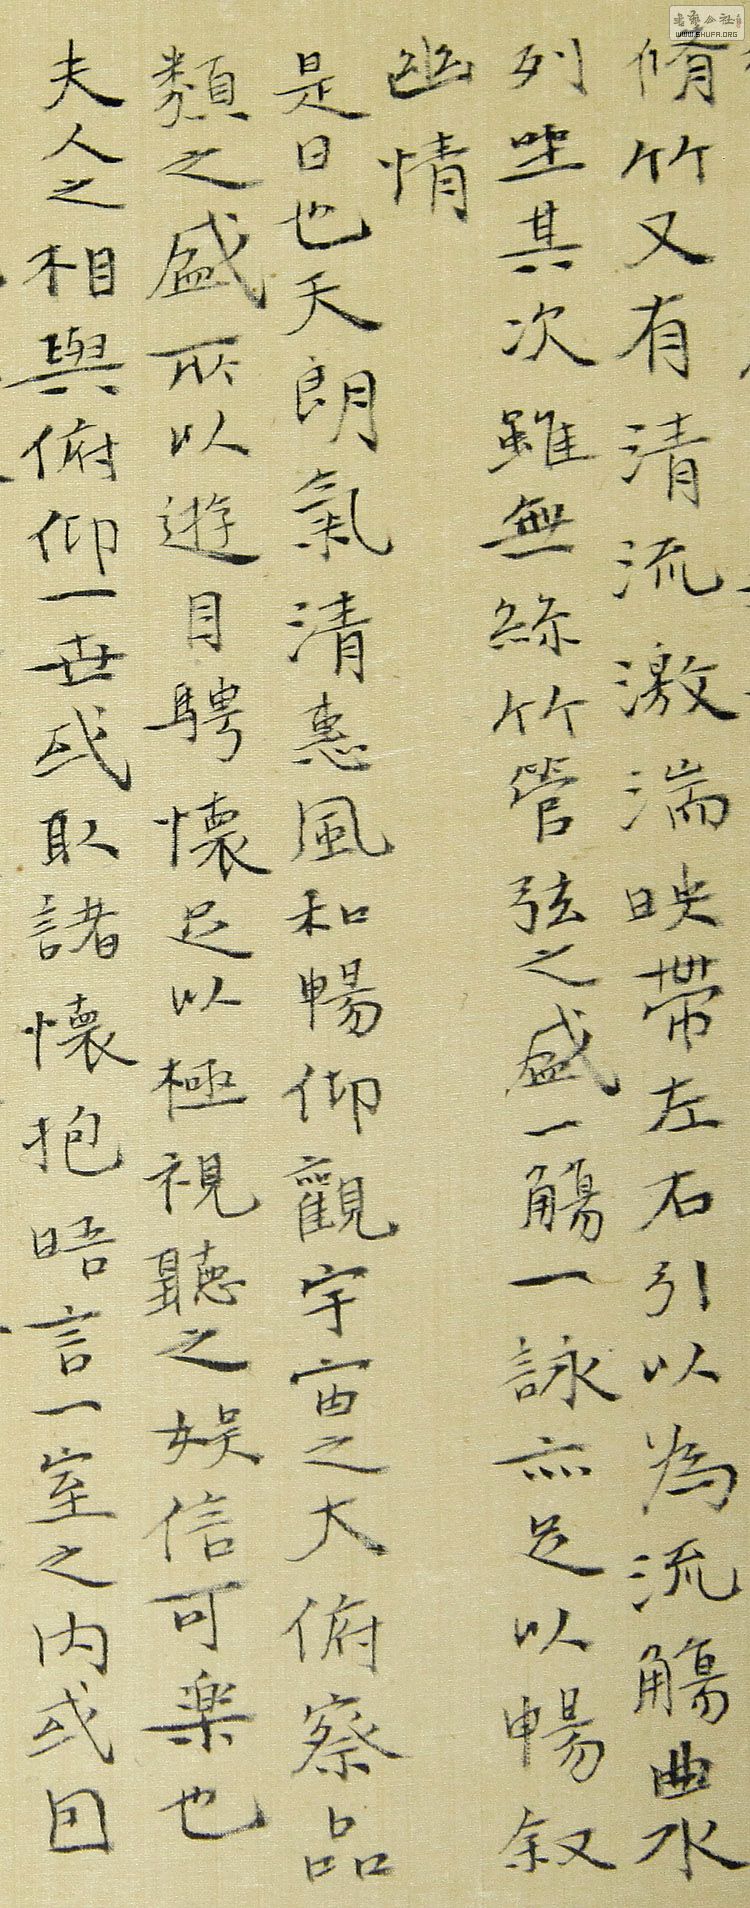 脩竹又有清流激湍映帶左右引以為流觴曲水
列坐其次雖無絲竹管弦之盛一觴一詠亦足以暢叙
幽情
是日也天朗氣清惠風和暢仰觀宇宙之大俯察品
類之盛所以遊目騁懷足以極視聽之娛信可樂也
夫人之相與俯仰一世或取諸懷抱晤言一室之內或因
WWW.SHUFA.ORG